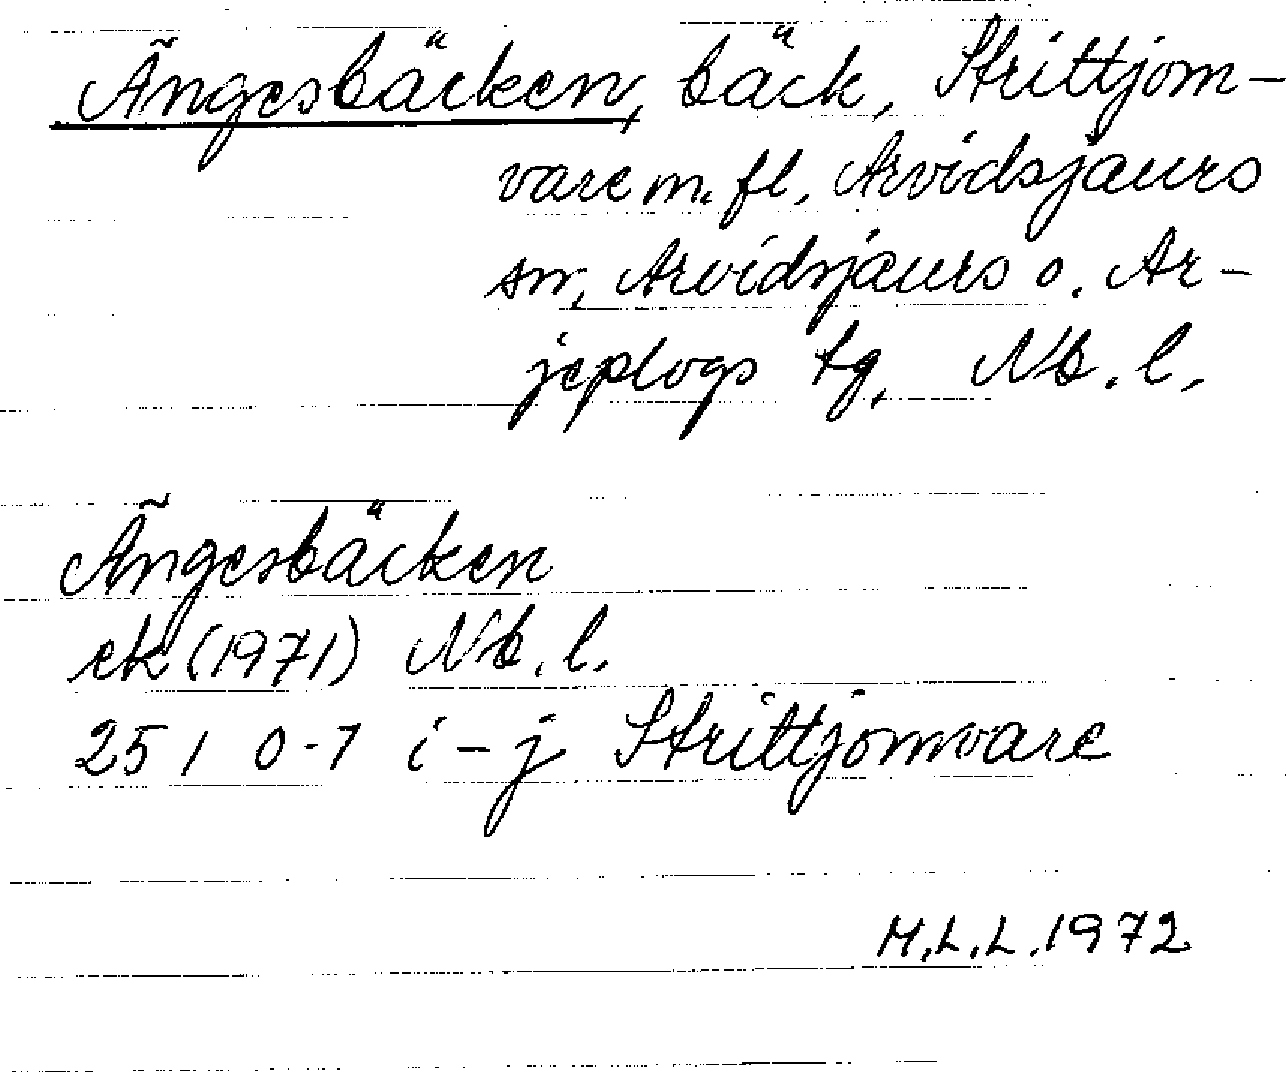 Ängesbäcken, bäck, Strittjom-
vare m.fl, Arvidsjaurs
sn, Arvidsjaurs o. Ar-
jeplogs tg, Nb. l.
Ängesbäcken
ek (1971) Nb. l.
25 I 0-1 i-j Strittjomvare
M.L.L. 1972